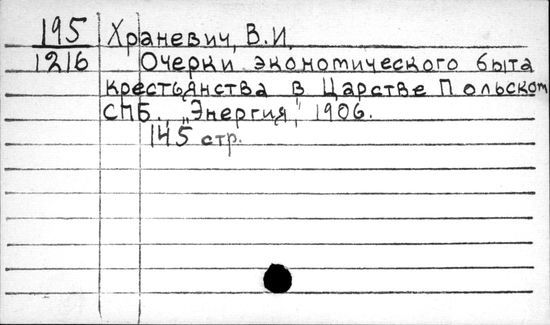 195 Храневич, В.И.
1216 Очерки экономического быта
крестьянства в Царстве Польском
СПБ., „Энергия," 1906.
145 стр.